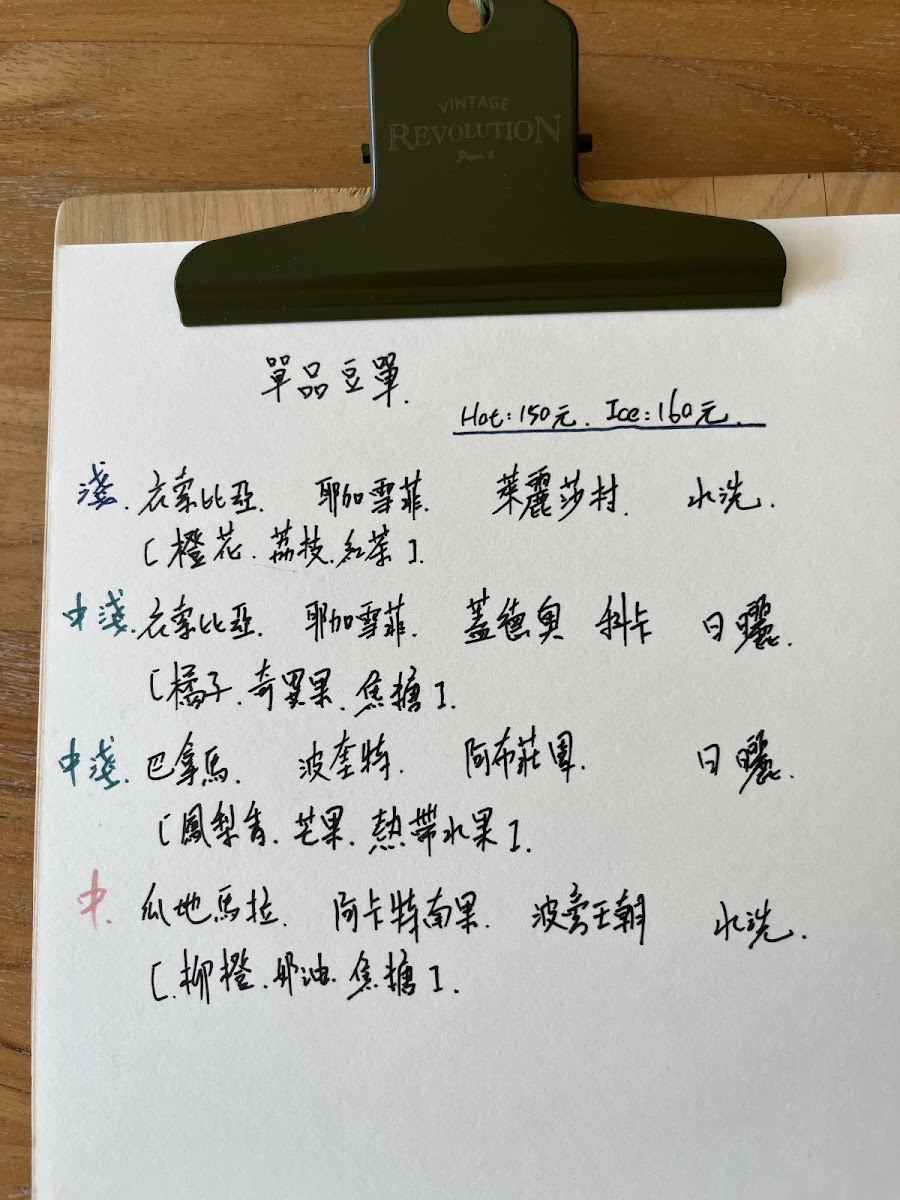 VINTAGE
REVOLUTION
單品豆單.
Hot:150元. Ice:160元.
淺. 衣索比亞. 耶加雪菲. 萊麗莎村. 水洗.
[橙花.荔枝.紅茶].
中淺. 衣索比亞. 耶加雪菲. 蓋德奧 科卡 日曬.
[橘子.奇異果.焦糖].
中淺. 巴拿馬. 波奎特. 阿布莊園. 日曬.
[鳳梨青.芒果.熱帶水果].
中. 瓜地馬拉. 阿卡特南果. 波旁王朝 水洗.
[.柳橙.奶油.焦糖].